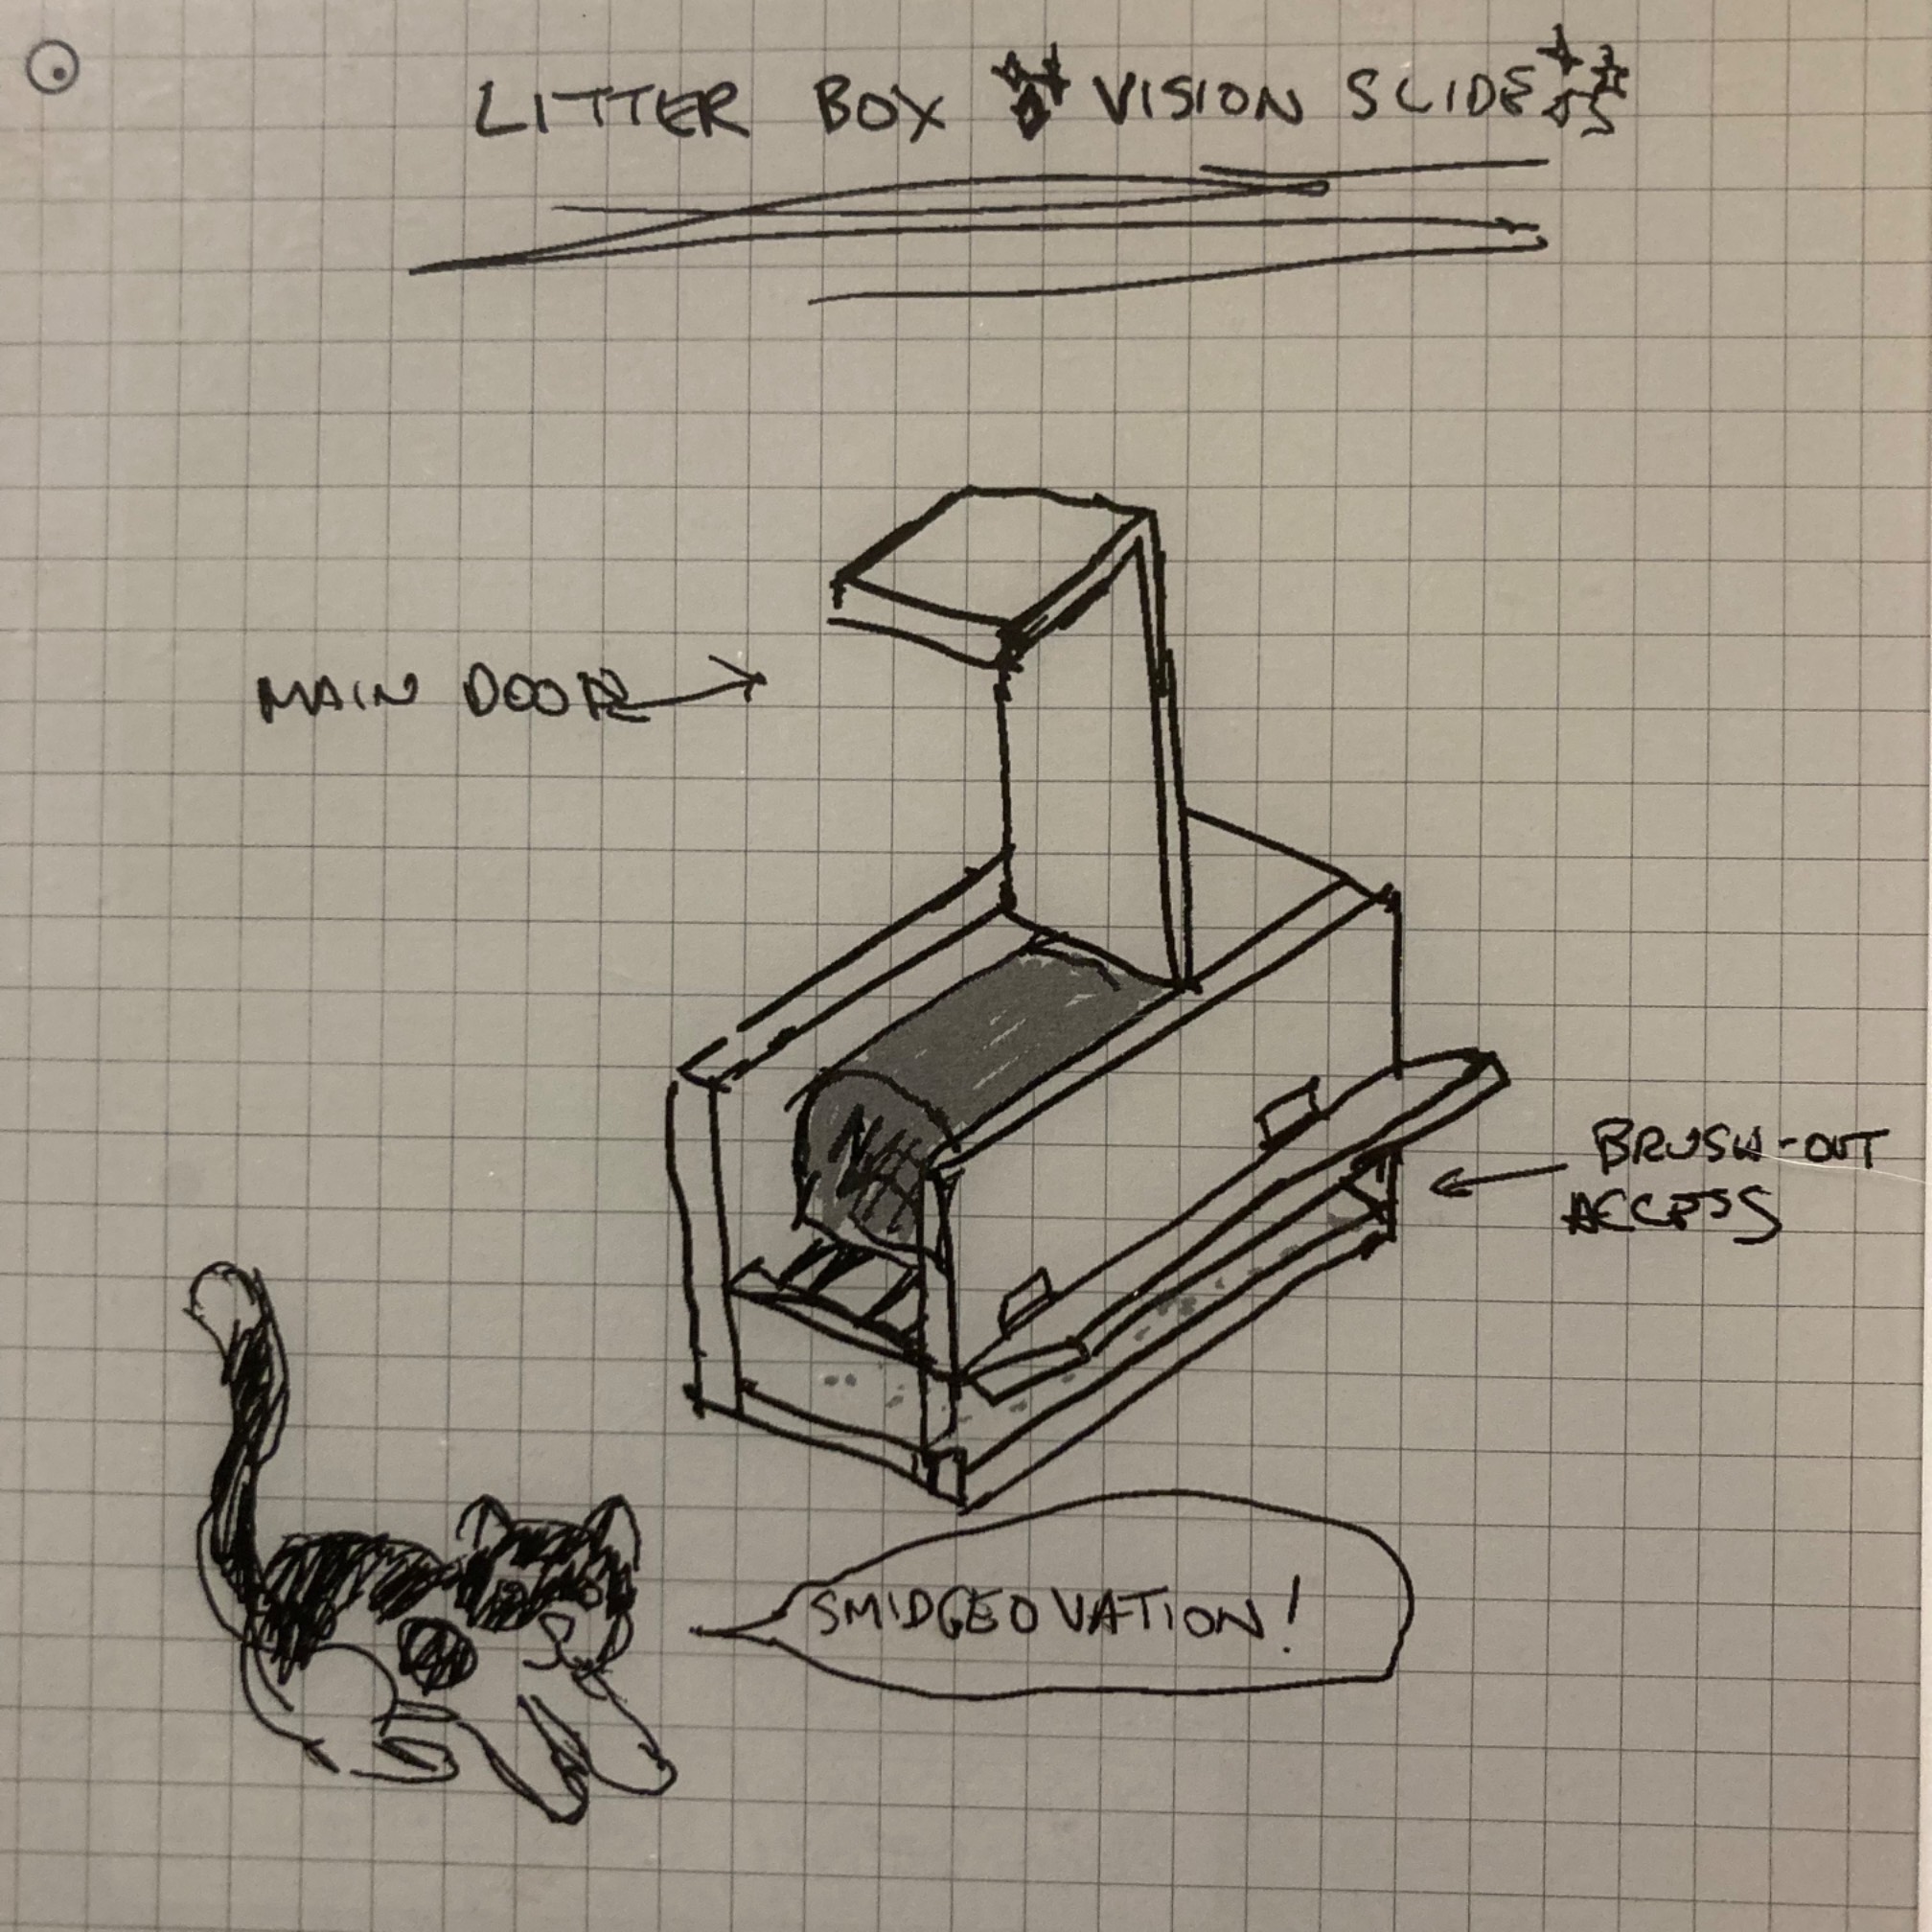 LITTER BOX VISION SLIDE
MAIN DOOR
BRUSH-OUT
ACCESS
SMIDGEOVATION!